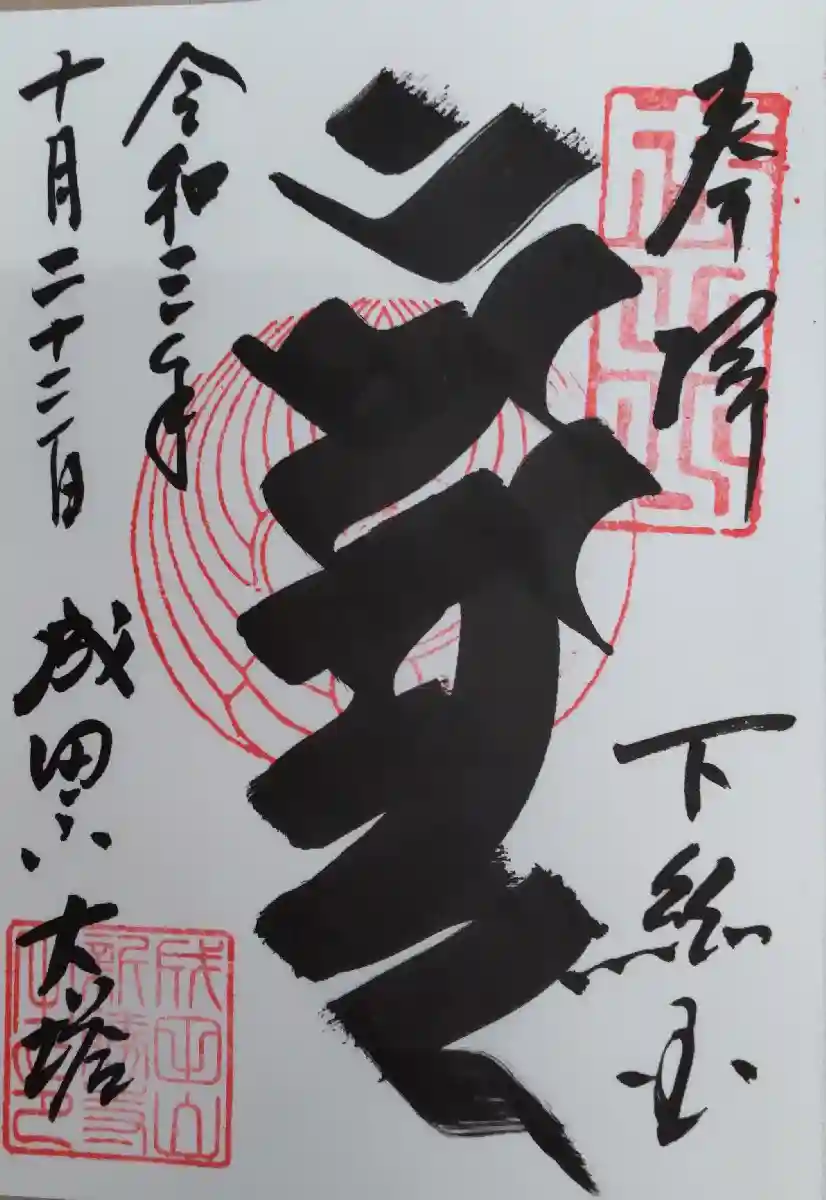 奉拝
下総国
令和三年
十月二十二日
成田山 大塔
成田山
成田山
新勝寺